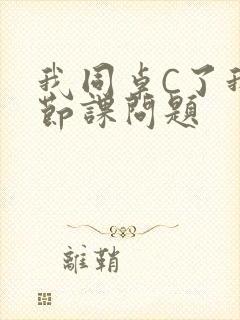 我同桌C了我
節課問題
離鞘